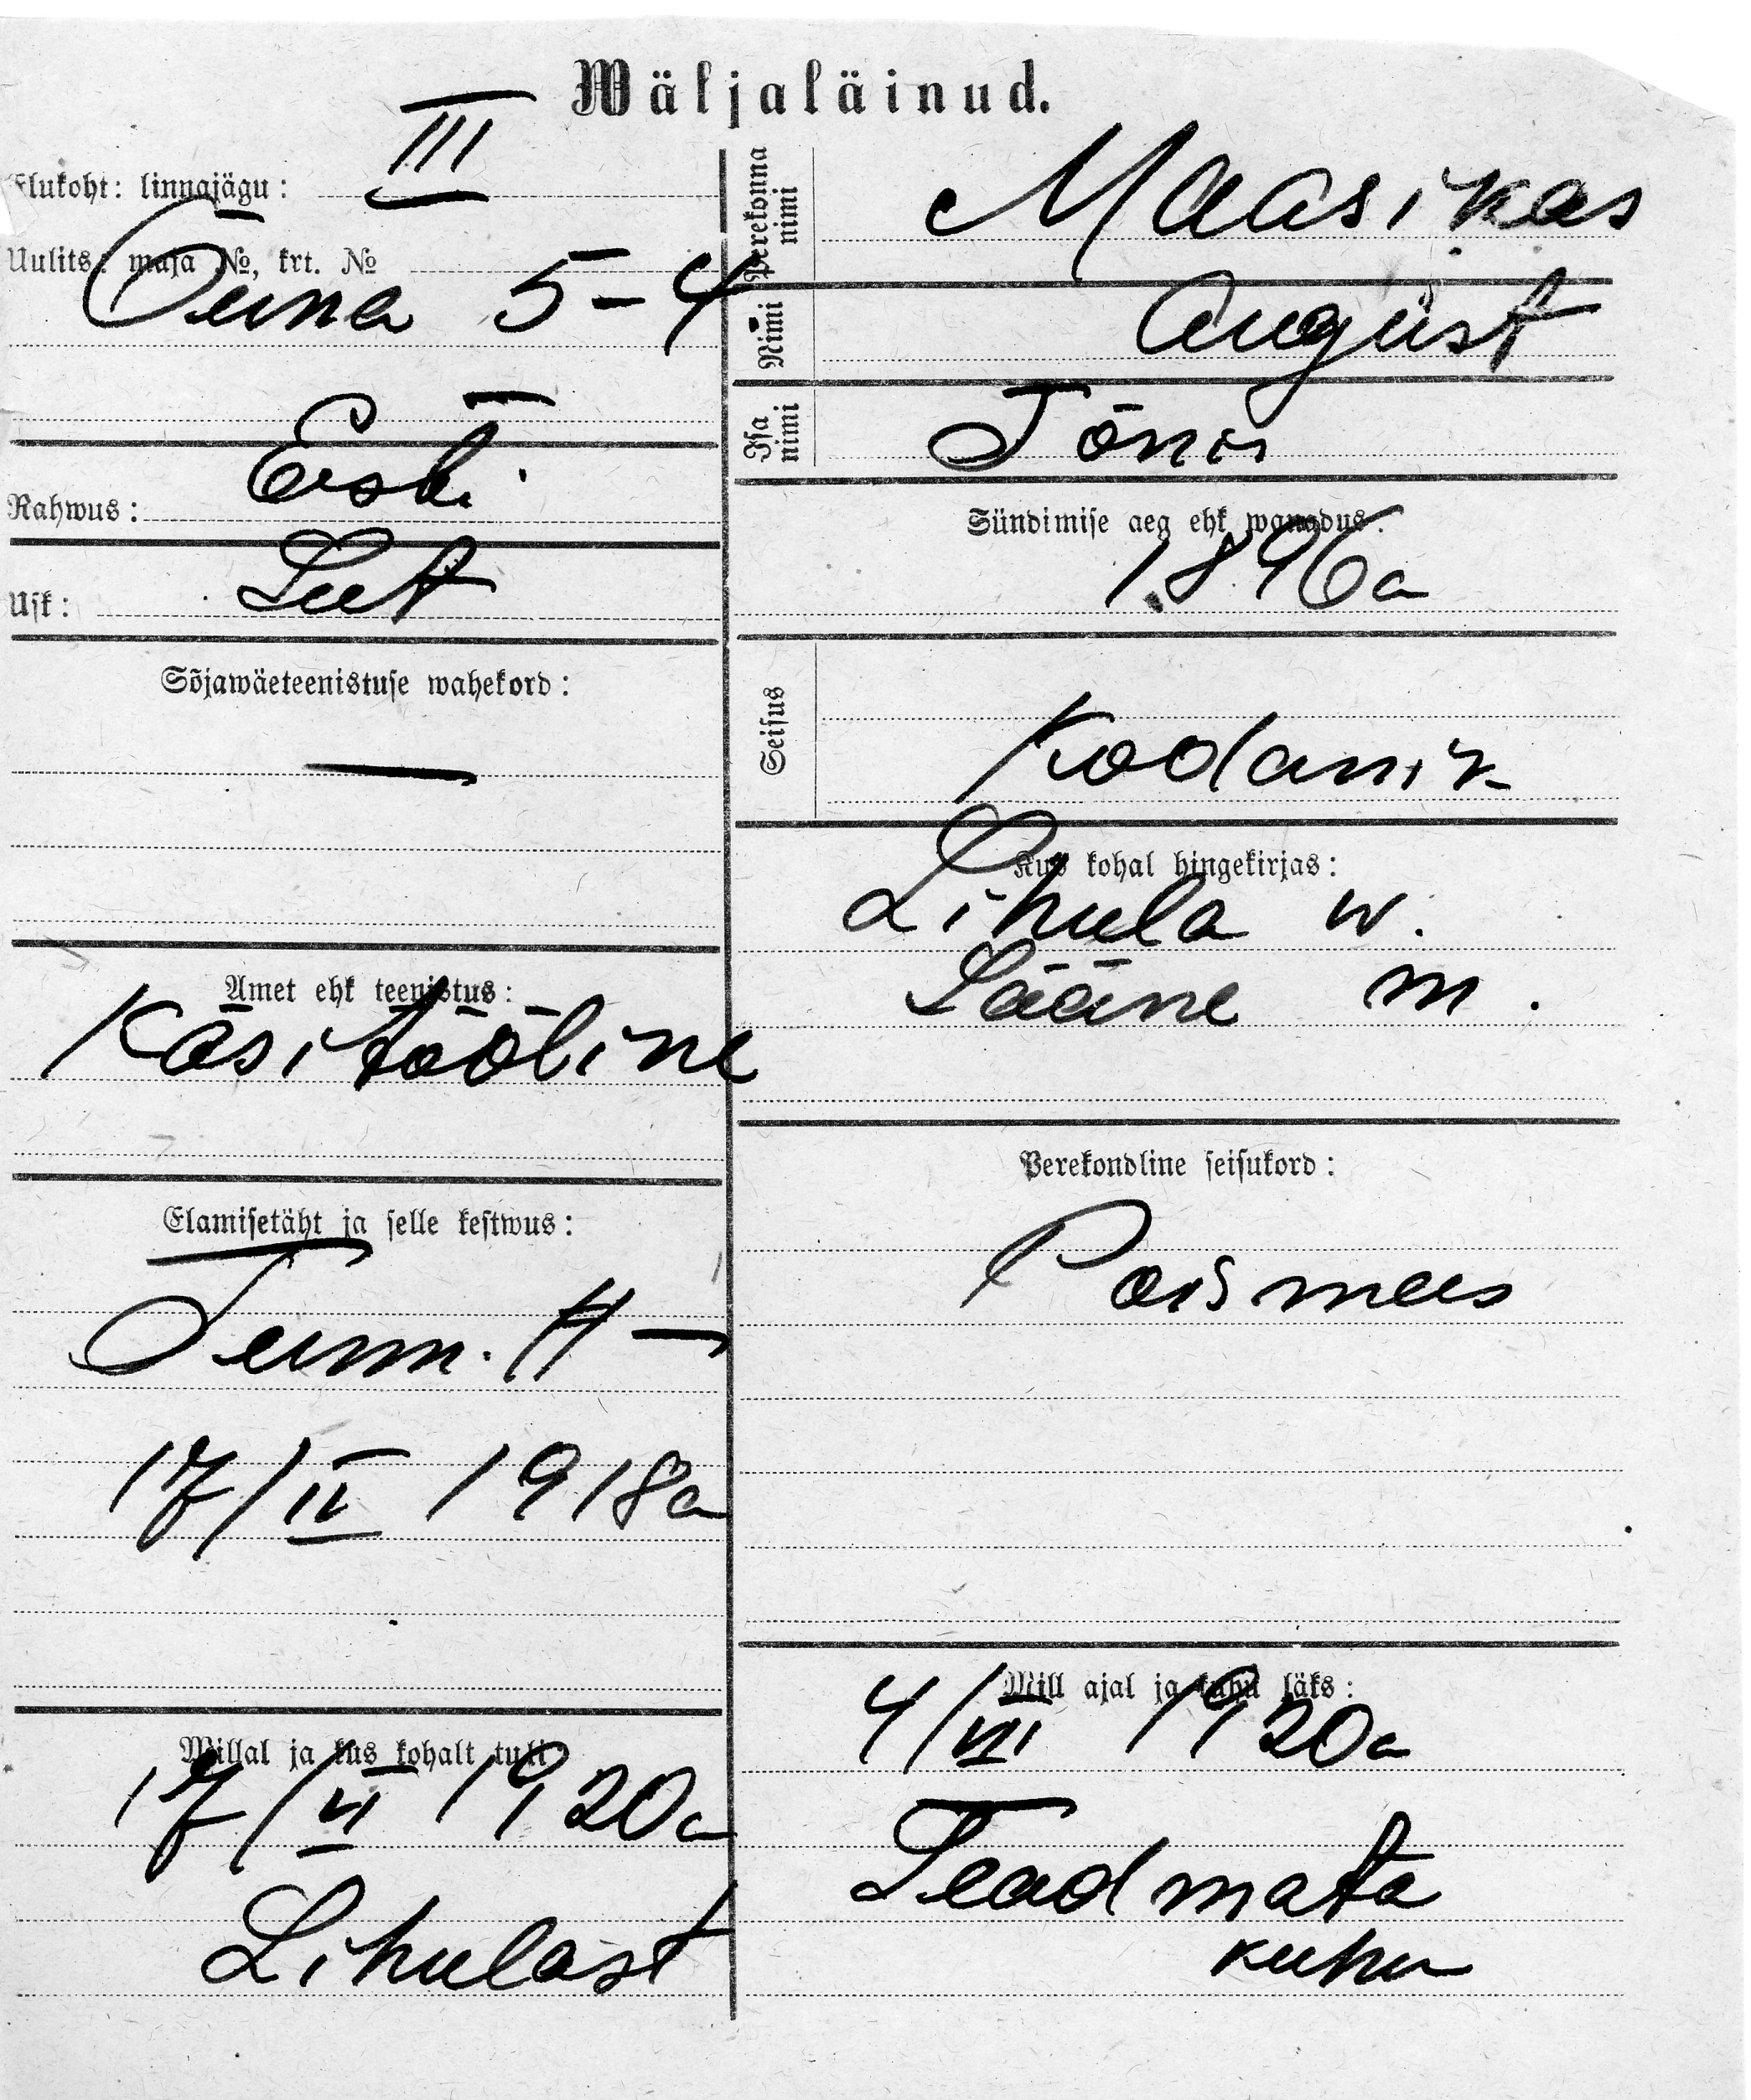 Wäljaläinud.
Elukoht: linnajägu: III
Uulits: maja №, krt. №
5–4
Rahwus: Esti
Usk: Lut
Sõjawäeteenistuse wahekord:
—
Amet ehk teenistus:
Käsitööline
Elamisetäht ja selle kestwus:
Tunn. H —
17/IV 1918a
Millal ja kus kohalt tuli
17/VI 1920a
Lihulast
Perekonna nimi Maasikas
Nimi August
Isa nimi Tõnis
Sündimise aeg ehk wanadus:
1896a
Seisus Kodanik
Kus kohal hingekirjas:
Lihula w.
Lääne m.
Perekondline seisukord:
Poismees
Mill ajal ja kuhu läks:
4/VII 1920a
Teadmata
kuhu